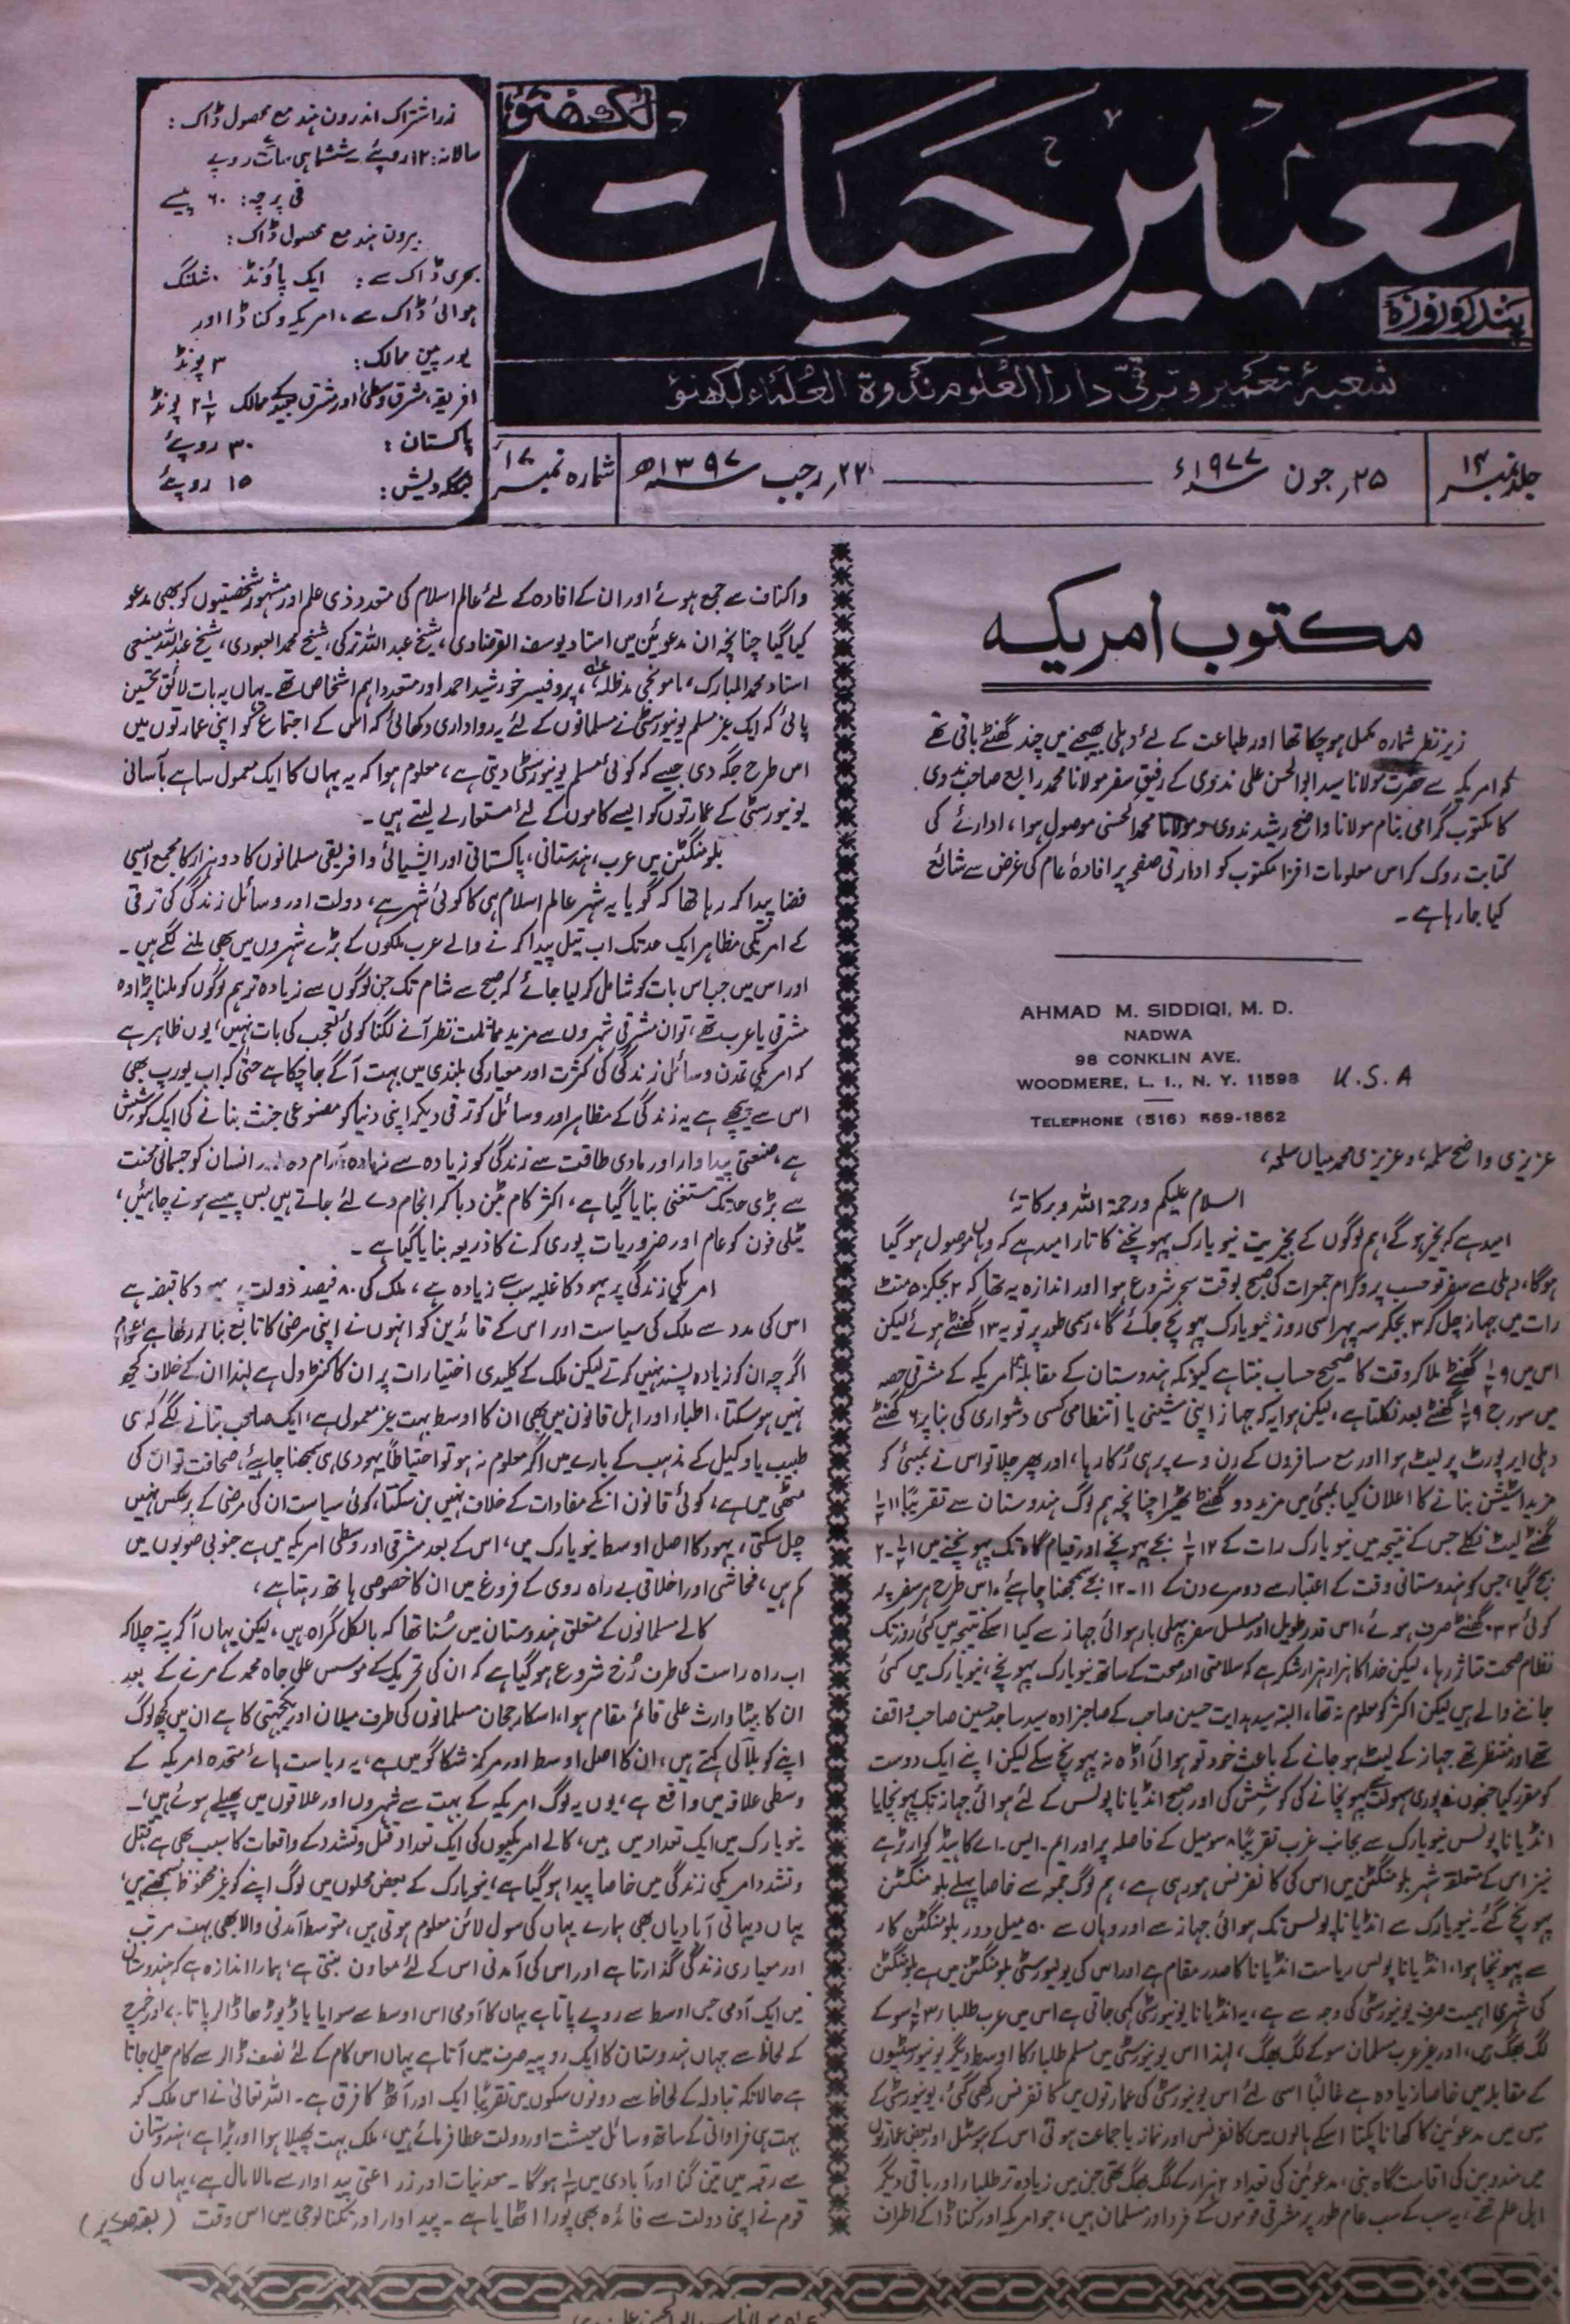 لکھنؤ
تعمیر حیات
پندرہ روزہ
شعبۂ تعمیر و ترقی دارالعلوم ندوۃ العلماء لکھنؤ
زر اشتراک اندرون ہند مع محصول ڈاک:
سالانہ: ۱۲ روپئے ششماہی سات روپے
فی پرچہ: ۶۰ پیسے
بیرون ہند مع محصول ڈاک:
بحری ڈاک سے: ایک پاؤنڈ شلنگ
ہوائی ڈاک سے، امریکہ و کناڈا اور
یورپین ممالک: ۳ پونڈ
افریقہ، مشرق وسطیٰ اور مشرق بعید کے ممالک ۲½ پونڈ
پاکستان: ۳۰ روپئے
بنگلہ دیش: ۱۵ روپئے
جلد نمبر ۱۴
۲۵؍ جون ۱۹۷۷ء
۲۲؍ رجب ۱۳۹۷ھ
شمارہ نمبر ۱۷
مکتوب امریکہ
زیر نظر شمارہ مکمل ہوچکا تھا اور طباعت کے لئے دہلی بھیجنے میں چند گھنٹے باقی تھے
کہ امریکہ سے حضرت مولانا سید ابوالحسن علی ندوی کے رفیق سفر مولانا محمد رابع صاحب ندوی
کا مکتوب گرامی بنام مولانا واضح رشید ندوی و مولانا محمد الحسنی موصول ہوا، ادارئے کی
کتابت روک کر اس معلومات افزا مکتوب کو ادارتی صفحہ پر افادۂ عام کی غرض سے شائع
کیا جارہا ہے۔
AHMAD M. SIDDIQI, M. D.
NADWA
98 CONKLIN AVE.
WOODMERE, L. I., N. Y. 11598 U.S.A
TELEPHONE (516) 569-1862
عزیزی واضح سلمہ، و عزیزی محمد میاں سلمہ،
السلام علیکم ورحمۃ اللہ وبرکاتہ،
امید ہے کہ بخیر ہوگے، ہم لوگوں کے بخیریت نیویارک پہونچنے کا تار امید ہے کہ وہاں موصول ہوگیا
ہوگا، دہلی سے سفر تو حسب پروگرام جمعرات کی صبح بوقت سحر شروع ہوا اور اندازہ یہ تھا کہ ۲ بجکر ۵۰ منٹ
رات میں جہاز چل کر ۳ بجکر سہ پہر اسی روز نیویارک پہونچ جائے گا، رسمی طور پر تو یہ ۱۳ گھنٹے ہوئے لیکن
اس میں ۹½ گھنٹے ملا کر وقت کا صحیح حساب بنتا ہے کیونکہ ہندوستان کے مقابلہ امریکہ کے مشرقی حصہ
میں سورج ۹½ گھنٹے بعد نکلتا ہے، لیکن ہوا یہ کہ جہاز اپنی مشینی یا انتظامی کسی دشواری کی بنا پر ۶ گھنٹے
دہلی ایرپورٹ پر لیٹ ہوا اور مع مسافروں کے رن وے پر ہی رُکا رہا، اور پھر چلا تو اس نے بمبئی کو
مزید اسٹیشن بنانے کا اعلان کیا بمبئی میں مزید دو گھنٹے ٹھیرا چنانچہ ہم لوگ ہندوستان سے تقریباً ۱۱½
گھنٹے لیٹ نکلے جس کے نتیجہ میں نیویارک رات کے ۱۲½ بجے پہونچے اور قیام گاہ تک پہونچنے میں ۱½-۲
بج گیا، جس کو ہندوستانی وقت کے اعتبار سے دوسرے دن کے ۱۱-۱۲ بجے سمجھنا چاہئے، اس طرح ہر سفر پر
کوئی ۳۳ گھنٹے صرف ہوئے، اس قدر طویل اور مسلسل سفر پہلی بار ہوائی جہاز سے کیا اسکے نتیجہ میں کئی روز تک
نظام صحت متاثر رہا، لیکن خدا کا ہزار ہزار شکر ہے کہ سلامتی اور صحت کے ساتھ نیویارک پہونچے، نیویارک میں کئی
جاننے والے ہیں لیکن اکثر کو معلوم نہ تھا، البتہ سید ہدایت حسین صاحب کے صاحبزادہ سید ساجد حسین صاحب واقف
تھے اور منتظر تھے جہاز کے لیٹ ہوجانے کے باعث خود تو ہوائی اڈہ نہ پہونچ سکے لیکن اپنے ایک دوست
کو مقرر کیا جنہوں نے پوری سہولت پہونچانے کی کوشش کی اور صبح انڈیاناپولس کے لئے ہوائی جہاز تک پہونچایا
انڈیاناپولس نیویارک سے بجانب غرب تقریباً ۸ سو میل کے فاصلہ پر اور ایم۔ایس۔اے کا ہیڈکوارٹر ہے
نیز اس کے متعلقہ شہر بلومنگٹن میں اس کی کانفرنس ہورہی ہے، ہم لوگ جمعہ سے خاصا پہلے بلومنگٹن
پہونچ گئے۔ نیویارک سے انڈیاناپولس تک ہوائی جہاز سے اور وہاں سے ۵۰ میل دور بلومنگٹن کار
سے پہونچنا ہوا، انڈیاناپولس ریاست انڈیانا کا صدر مقام ہے اور اس کی یونیورسٹی بلومنگٹن میں ہے بلومنگٹن
کی شہری اہمیت صرف یونیورسٹی کی وجہ سے ہے، یہ انڈیانا یونیورسٹی کہی جاتی ہے اس میں عرب طلباء ۳½ سو کے
لگ بھگ ہیں، اور غیر عرب مسلمان سو کے لگ بھگ، لہذا اس یونیورسٹی میں مسلم طلباء کا اوسط دیگر یونیورسٹیوں
کے مقابلہ میں خاصا زیادہ ہے غالباً اسی لئے اس یونیورسٹی کی عمارتوں میں کانفرنس رکھی گئی، یونیورسٹی کے
میس میں مدعوئین کا کھانا پکتا اسکے ہالوں میں کانفرنس اور نماز باجماعت ہوتی اس کے ہوسٹل اور بعض عمارتوں
میں مندوبین کی اقامت گاہ بنی، مدعوئین کی تعداد ۲ ہزار کے لگ بھگ تھی جن میں زیادہ تر طلباء اور باقی دیگر
اہل علم تھے، یہ سب کے سب عام طور پر مشرقی قوموں کے فرد اور مسلمان ہیں، جو امریکہ اور کناڈا کے اطراف
واکناف سے جمع ہوئے اور ان کے افادہ کے لئے عالم اسلام کی متعدد ذی علم اور مشہور شخصیتوں کو بھی مدعو
کیا گیا چنانچہ ان مدعوئین میں استاد یوسف القرضاوی، شیخ عبداللہ ترکی، شیخ محمد العبودی، شیخ عبداللہ منیعی
استاد محمد المبارک، ماموں جی مدظلہ، پروفیسر خورشید احمد اور متعدد اہم اشخاص تھے۔ یہاں یہ بات لائق تحسین
پائی کہ ایک غیر مسلم یونیورسٹی نے مسلمانوں کے لئے یہ رواداری دکھائی کہ اس کے اجتماع کو اپنی عمارتوں میں
اس طرح جگہ دی جیسے کہ کوئی مسلم یونیورسٹی دیتی ہے، معلوم ہوا کہ یہ یہاں کا ایک معمول سا ہے بآسانی
یونیورسٹی کے عمارتوں کو ایسے کاموں کے لئے مستعار لے لیتے ہیں۔
بلومنگٹن میں عرب، ہندستانی، پاکستانی اور ایشیائی وافریقی مسلمانوں کا دو ہزار کا مجمع ایسی
فضا پیدا کررہا تھا کہ گویا یہ شہر عالم اسلام ہی کا کوئی شہر ہے، دولت اور وسائل زندگی کی ترقی
کے امریکی مظاہر ایک حد تک اب تیل پیدا کرنے والے عرب ملکوں کے بڑے شہروں میں بھی ملنے لگے ہیں۔
اور اس میں جب اس بات کو شامل کرلیا جائے کہ صبح سے شام تک جن لوگوں سے زیادہ تر ہم لوگوں کو ملنا پڑا وہ
مشرقی یا عرب تھے، تو ان مشرقی شہروں سے مزید مماثلت نظر آنے لگنا کوئی تعجب کی بات نہیں، یوں ظاہر ہے
کہ امریکی تمدن وسائل زندگی کی کثرت اور معیار کی بلندی میں بہت آگے جاچکا ہے حتیٰ کہ اب یورپ بھی
اس سے پیچھے ہے یہ زندگی کے مظاہر اور وسائل کو ترقی دیکر اپنی دنیا کو مصنوعی جنت بنانے کی ایک کوشش
ہے، صنعتی پیداوار اور مادی طاقت سے زندگی کو زیادہ سے زیادہ آرام دہ اور انسان کو جسمانی محنت
سے بڑی حد تک مستغنی بنایا گیا ہے، اکثر کام بٹن دبا کر انجام دے لئے جاتے ہیں بس پیسے ہونے چاہئیں،
ٹیلی فون کو عام اور ضروریات پوری کرنے کا ذریعہ بنایا گیا ہے۔
امریکی زندگی پر یہود کا غلبہ سب سے زیادہ ہے، ملک کی ۸۰ فیصد دولت پر یہود کا قبضہ ہے
اس کی مدد سے ملک کی سیاست اور اس کے قائدین کو انہوں نے اپنی مرضی کا تابع بنا کر رکھا ہے، عوام
اگرچہ ان کو زیادہ پسند نہیں کرتے لیکن ملک کے کلیدی اختیارات پر ان کا کنٹرول ہے لہذا ان کے خلاف کچھ
نہیں ہوسکتا، اطباء اور اہل قانون میں بھی ان کا اوسط بہت غیر معمولی ہے، ایک صاحب بتانے لگے کہ کسی
طبیب یا وکیل کے مذہب کے بارے میں اگر معلوم نہ ہو تو احتیاطاً یہودی ہی سمجھنا چاہئے، صحافت تو ان کی
مٹھی میں ہے، کوئی قانون انکے مفادات کے خلاف نہیں بن سکتا، کوئی سیاست ان کی مرضی کے برعکس نہیں
چل سکتی، یہود کا اصل اوسط نیویارک میں، اس کے بعد مشرقی اور وسطی امریکہ میں ہے جنوبی صوبوں میں
کم ہیں، فحاشی اور اخلاقی بے راہ روی کے فروغ میں ان کا خصوصی ہاتھ رہتا ہے،
کالے مسلمانوں کے متعلق ہندوستان میں سُنا تھا کہ بالکل گمراہ ہیں، لیکن یہاں آکر پتہ چلا کہ
اب راہ راست کی طرف رُخ شروع ہوگیا ہے کہ ان کی تحریک کے موسس علی جاہ محمد کے مرنے کے بعد
ان کا بیٹا وارث علی قائم مقام ہوا، اسکا رجحان مسلمانوں کی طرف میلان اور یکجہتی کا ہے ان میں کچھ لوگ
اپنے کو بلالی کہتے ہیں، ان کا اصل اوسط اور مرکز شکاگو میں ہے، یہ ریاست ہائے متحدہ امریکہ کے
وسطی علاقہ میں واقع ہے، یوں یہ لوگ امریکہ کے بہت سے شہروں اور علاقوں میں پھیلے ہوئے ہیں،۔
نیویارک میں ایک تعداد میں ہیں، کالے امریکیوں کی ایک تعداد قتل وتشدد کے واقعات کا سبب بھی ہے قتل
وتشدد امریکی زندگی میں خاصا پیدا ہوگیا ہے، نیویارک کے بعض محلوں میں لوگ اپنے کو غیر محفوظ سمجھتے ہیں،
یہاں دیہاتی آبادیاں بھی ہمارے یہاں کی سول لائن معلوم ہوتی ہیں، متوسط آمدنی والا بھی بہت مرتب
اور معیاری زندگی گذارتا ہے اور اس کی آمدنی اس کے لئے معاون بنتی ہے، ہمارا اندازہ ہے کہ ہندوستان
میں ایک آدمی جس اوسط سے روپے پاتا ہے یہاں کا آدمی اس اوسط سے سوایا یا ڈیوڑھا ڈالر پاتا ہے، اور خرچ
کے لحاظ سے جہاں ہندوستان کا ایک روپیہ صرف میں آتا ہے یہاں اس کام کے لئے نصف ڈالر سے کام چل جاتا
ہے حالانکہ تبادلہ کے لحاظ سے دونوں سکوں میں تقریباً ایک اور آٹھ کا فرق ہے۔ اللہ تعالیٰ نے اس ملک کو
بہت ہی فراوانی کے ساتھ وسائل معیشت اور دولت عطا فرمائے ہیں، ملک بہت پھیلا ہوا اور بڑا ہے، ہندوستان
سے رقبہ میں تین گنا اور آبادی میں ½ ہوگا۔ معدنیات اور زراعتی پیداوار سے مالا مال ہے، یہاں کی
قوم نے اپنی دولت سے فائدہ بھی پورا اٹھایا ہے۔ پیداوار اور تکنالوجی میں اس وقت